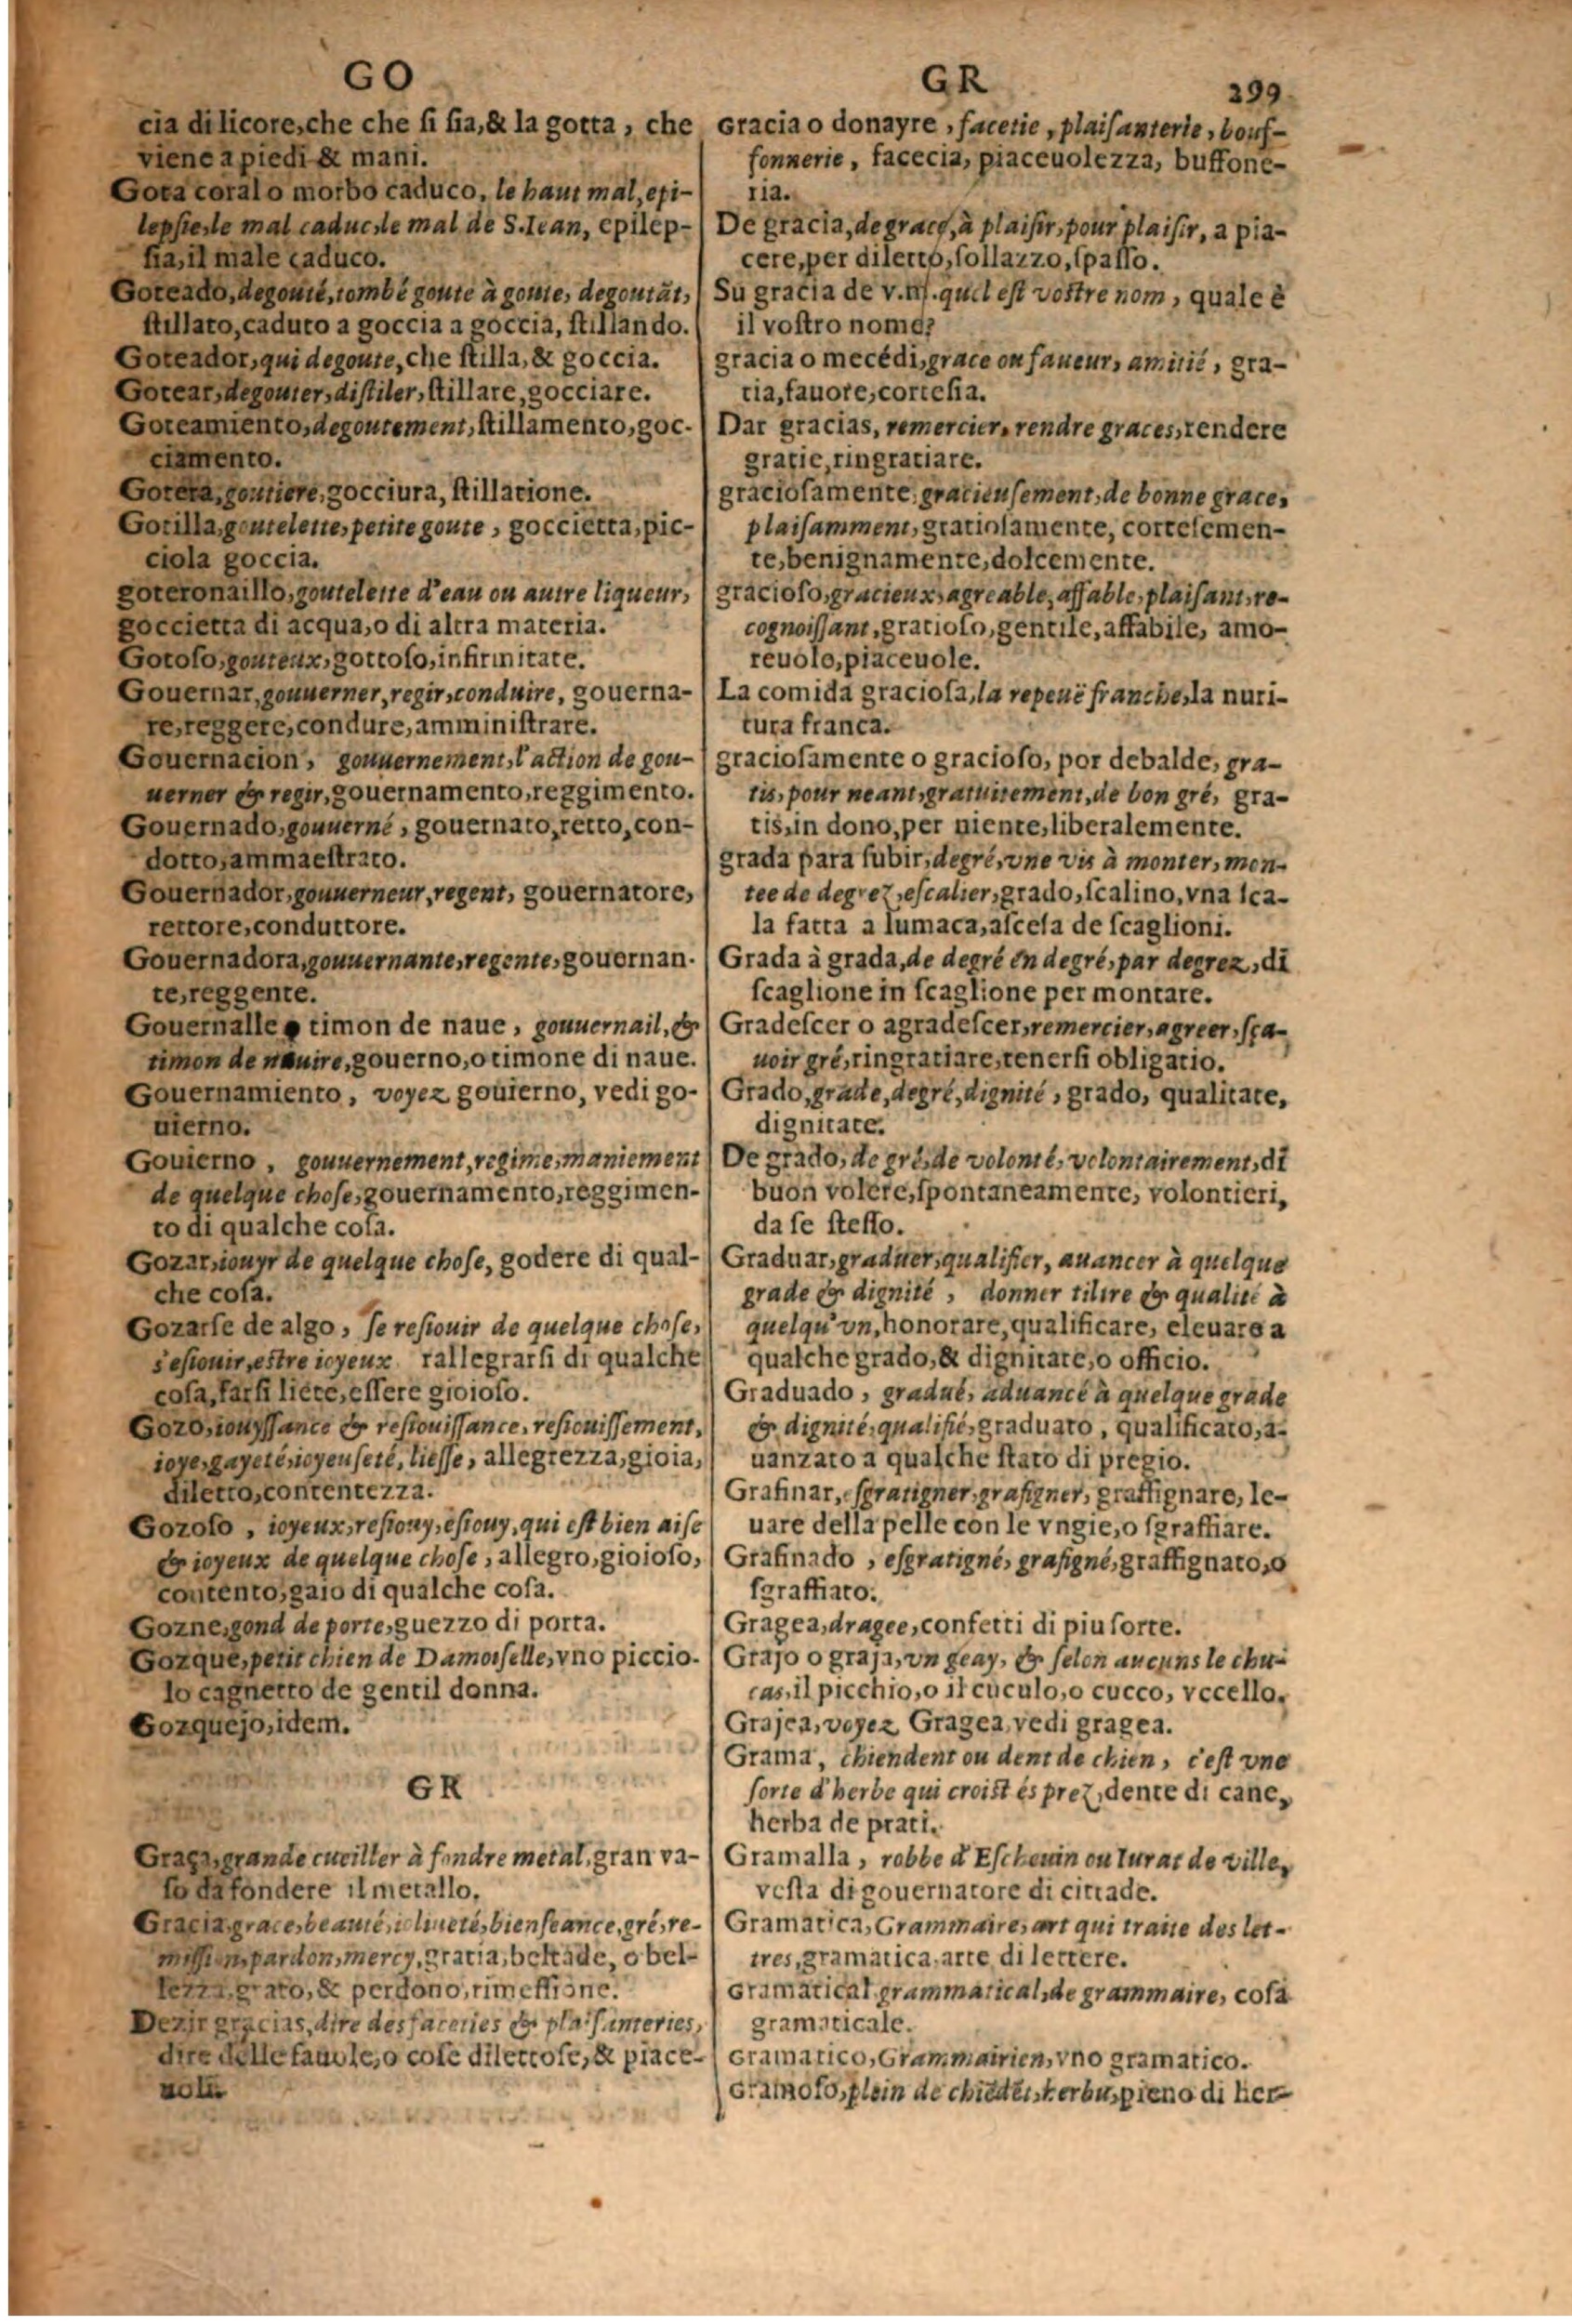 GO
cia di licore, che che ſi ſia, & la gotta, che
viene a piedi & mani.
Gota coral o morbo caduco, le haut mal, epi-
lepſie, le mal caduc, le mal de S. Iean, epilep-
ſia, il male caduco.
Goteado, degouté, tombé goute à goute, degoutāt,
ſtillato, caduto a goccia a goccia, ſtillando.
Goteador, qui degoute, che ſtilla, & goccia.
Gotear, degouter, diſtiler, ſtillare, gocciare.
Goteamiento, degoutement, ſtillamento, goc-
ciamento.
Gotera, goutiere, gocciura, ſtillatione.
Gotilla, goutelette, petite goute, goccietta, pic-
ciola goccia.
goteronaillo, goutelette d'eau ou autre liqueur,
goccietta di acqua, o di altra materia.
Gotoſo, gouteux, gottoſo, infirmitate.
Gouernar, gouuerner, regir, conduire, gouerna-
re, reggere, condure, amminiſtrare.
Gouernacion, gouuernement, l'action de gou-
uerner & regir, gouernamento, reggimento.
Gouernado, gouuerné, gouernato, retto, con-
dotto, ammaeſtrato.
Gouernador, gouuerneur, regent, gouernatore,
rettore, conduttore.
Gouernadora, gouuernante, regente, gouernan-
te, reggente.
Gouernalle o timon de naue, gouuernail, &
timon de nauire, gouerno, o timone di naue.
Gouernamiento, voyez gouierno, vedi go-
uierno.
Gouierno, gouuernement, regime, maniement
de quelque choſe, gouernamento, reggimen-
to di qualche coſa.
Gozar, iouyr de quelque choſe, godere di qual-
che coſa.
Gozarſe de algo, ſe reſiouir de quelque choſe,
s'eſiouir, eſtre ioyeux rallegrarſi di qualche
coſa, farſi liete, eſſere gioioſo.
Gozo, iouyſſance & reſiouiſſance, reſiouiſſement,
ioye, gayeté, ioyeuſeté, lieſſe, allegrezza, gioia,
diletto, contentezza.
Gozoſo, ioyeux, reſiouy, eſiouy, qui eſt bien aiſe
& ioyeux de quelque choſe, allegro, gioioſo,
contento, gaio di qualche coſa.
Gozne, gond de porte, guezzo di porta.
Gozque, petit chien de Damoiſelle, vno piccio-
lo cagnetto de gentil donna.
Gozquejo, idem.
GR
Graça, grande cueiller à fondre metal, gran va-
ſo da fondere il metallo.
Gracia, grace, beauté, ioliueté, bienſeance, gré, re-
miſſion, pardon, mercy, gratia, beltade, o bel-
lezza, grato, & perdono, rimeſſione.
Dezir gracias, dire des faceties & plaiſanteries,
dire delle fauole, o coſe dilettoſe, & piace-
uoli.
GR
299
Gracia o donayre, facetie, plaiſanterie, bouf-
fonnerie, facecia, piaceuolezza, buffone-
ria.
De gracia, de grace, à plaiſir, pour plaiſir, a pia-
cere, per diletto, ſollazzo, ſpaſſo.
Su gracia de v.m. quel eſt voſtre nom, quale è
il voſtro nome?
gracia o mecédi, grace ou faueur, amitié, gra-
tia, fauore, corteſia.
Dar gracias, remercier, rendre graces, rendere
gratie, ringratiare.
gracioſamente, gracieuſement, de bonne grace,
plaiſamment, gratioſamente, corteſemen-
te, benignamente, dolcemente.
gracioſo, gracieux, agreable, affable, plaiſant, re-
cognoiſſant, gratioſo, gentile, affabile, amo-
reuole, piaceuole.
La comida gracioſa, la repeuë franche, la nuri-
tura franca.
gracioſamente o gracioſo, por debalde, gra-
tis, pour neant, gratuitement, de bon gré, gra-
tis, in dono, per niente, liberalemente.
grada para ſubir, degré, vne vis à monter, mon-
tee de degrez, eſcalier, grado, ſcalino, vna ſca-
la fatta a lumaca, aſceſa de ſcaglioni.
Grada à grada, de degré en degré, par degrez, di
ſcaglione in ſcaglione per montare.
Gradeſcer o agradeſcer, remercier, agreer, ſça-
uoir gré, ringratiare, tenerſi obligatio.
Grado, grade, degré, dignité, grado, qualitate,
dignitate.
De grado, de gré, de volonté, volontairement, di
buon volere, ſpontaneamente, volontieri,
da ſe ſteſſo.
Graduar, graduer, qualifier, auancer à quelque
grade & dignité, donner tiltre & qualité à
quelqu'vn, honorare, qualificare, eleuare a
qualche grado, & dignitate, o officio.
Graduado, gradué, aduancé à quelque grade
& dignité, qualifié, graduato, qualificato, a-
uanzato a qualche ſtato di pregio.
Grafinar, eſgratigner, grafigner, graffignare, le-
uare della pelle con le vngie, o ſgraffiare.
Grafinado, eſgratigné, grafigné, graffignato, o
ſgraffiato.
Gragea, dragee, confetti di piu ſorte.
Grajo o graja, vn geay, & ſelon aucuns le chu-
cas, il picchio, o il cuculo, o cucco, vccello.
Grajea, voyez Gragea, vedi gragea.
Grama, chiendent ou dent de chien, c'eſt vne
ſorte d'herbe qui croiſt és prez, dente di cane,
herba de prati.
Gramalla, robbe d'Eſcheuin ou Iurat de ville,
veſta di gouernatore di cittade.
Gramatica, Grammaire, art qui traite des let-
tres, gramatica, arte di lettere.
Gramatical, grammatical, de grammaire, coſa
gramaticale.
Gramatico, Grammairien, vno gramatico.
Gramoſo, plein de chiēdēt, herbu, pieno di her-